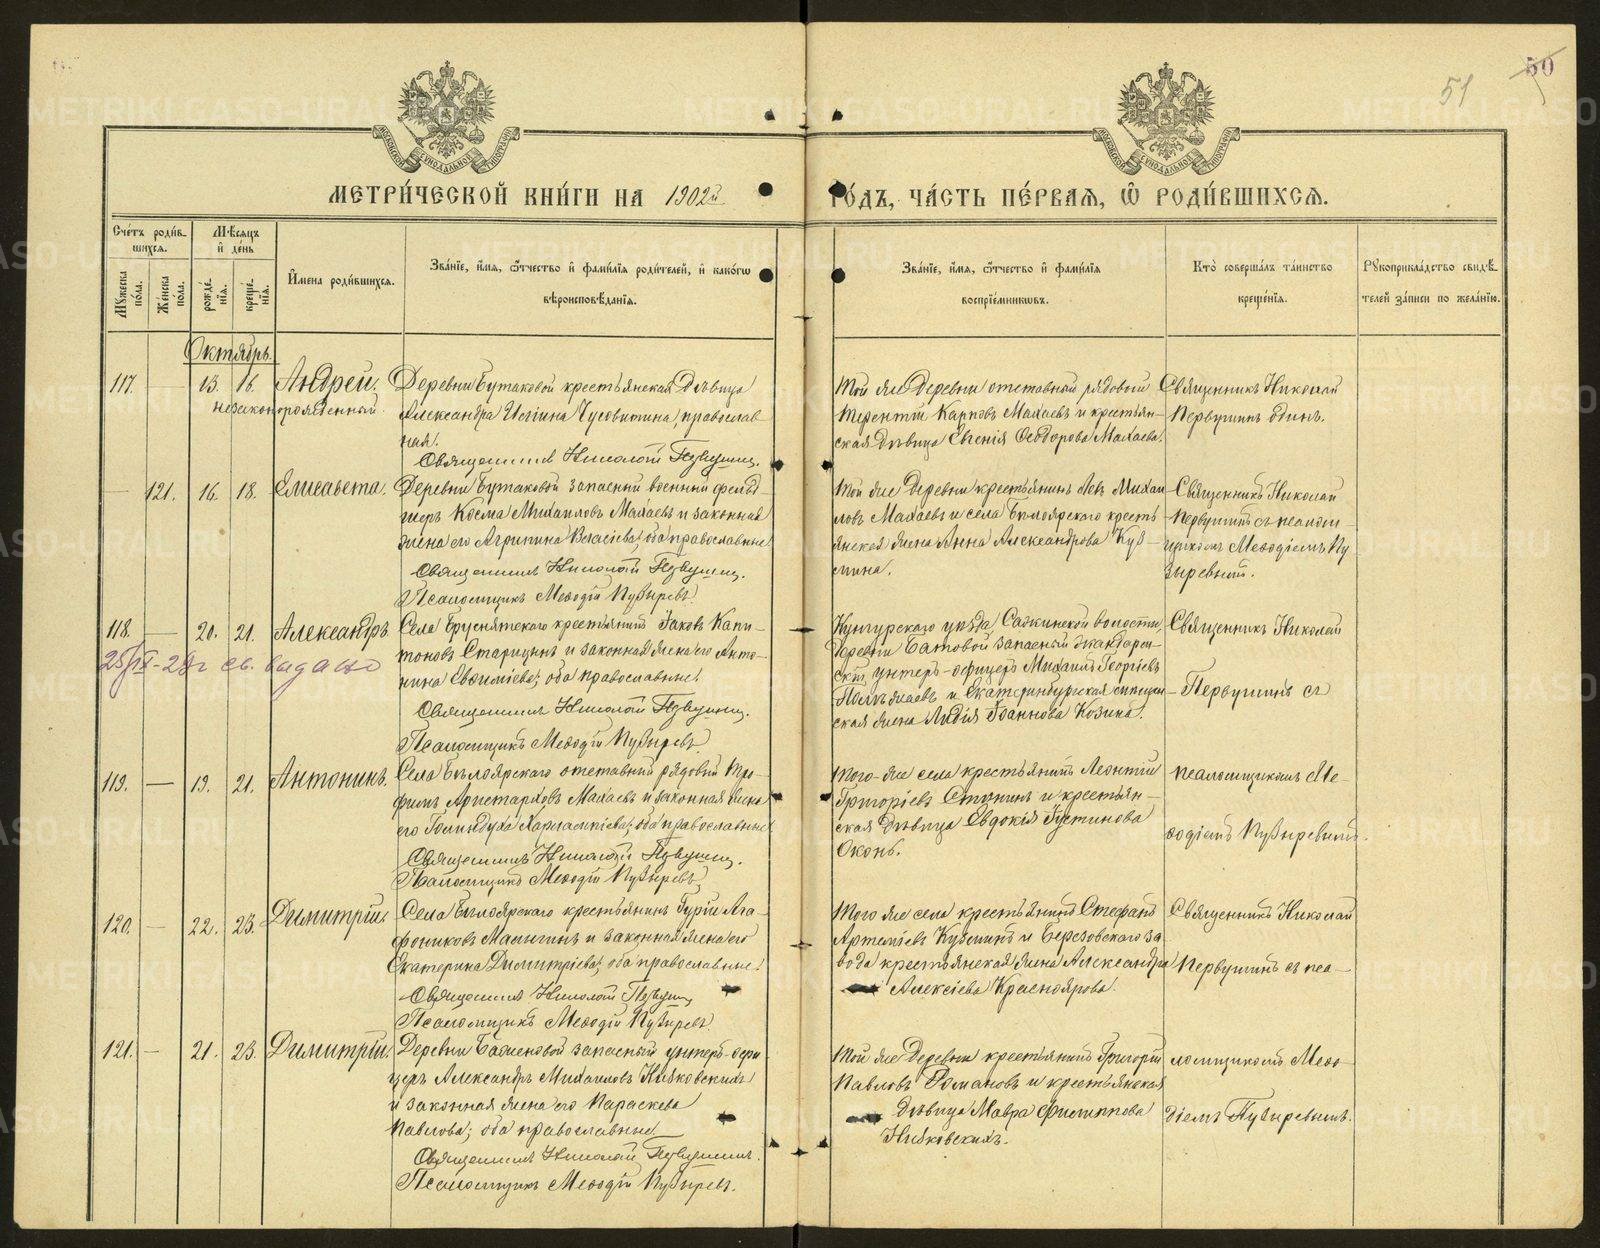 50
51
МЕТРИ́ЧЕСКОЙ КНИ́ГИ НА 1902й
ГО́ДЪ, ЧА́СТЬ ПЕ́РВАЯ, Ѡ РОДИ́ВШИХСЯ.
Сче́тъ роди́в-
шихся.
Мѣсяцъ
и де́нь
Мужеска по́ла.
Же́нска по́ла.
рожде́-
нія.
креще́-
нія.
И́мена роди́вшихся.
Зва́ніе, и́мя, ѻтчество и фами́лія роди́телей, и како́гѡ
вѣроисповѣ́данія.
Зва́ніе, и́мя, ѻтчество и фами́лія
воспріе́мникѡвъ.
Кто̀ соверша́лъ та́инство
креще́нія.
Рукоприкла́дство свидѣ́-
телей за́писи по жела́нію.
Октябрь.
117. — 13. 16. Андрей.
незаконорожденный.
Деревни Бутаковой крестьянская Дѣвица
Александра Чусовитина, православ
ная.
Священникъ Николай Первушин.
Той же Деревни отставной рядовой
Терентій Карповъ Малаевъ и крестьян-
ская Дѣвица Евгенія Ѳеодорова Малаева.
Священникъ Николай
Первушинъ одинъ.
— 121. 16. 18. Елисавета.
Деревни Бутаковой запасный военный фельд-
шеръ Косма Михаиловъ Малаевъ и законная
жена его Агрипина Власіева; оба православные
Священникъ Николай Первушин.
Псаломщикъ Меѳодій Пузыревъ.
Той же Деревни крестьянинъ Левъ Михаи
ловъ Малаевъ и села Бѣлоярскаго кресть
янская жена Анна Александрова Куз-
мина.
Священникъ Николай
Первушинъ съ псалом-
щикомъ Меѳодіемъ Пу
зыревым.
118. — 20. 21. Александръ.
выдано
Села Бруснятскаго крестьянинъ Іаковъ Капи-
тоновъ Старицинъ и законная жена его Анто-
нина Евѳиміева; оба православные.
Священникъ Николай Первушин.
Псаломщикъ Меѳодій Пузыревъ.
Кунгурскаго уѣзда волости,
деревни Батовой запасный жандарм-
скій унтеръ-офицеръ Михаилъ Георгіевъ
и Екатеринбургская
ская жена Лидія Іоаннова Козина.
Священникъ Николай
Первушинъ съ
119. — 19. 21. Антонинъ.
Села Бѣлоярскаго отставный рядовый Тро-
фимъ Аристарховъ Малаевъ и законная жена
его Голиндуха Харлампіева; оба православные
Священникъ Николай Первушин.
Псаломщикъ Меѳодій Пузыревъ.
Того-же села крестьянинъ Леонтій
Григоріевъ и крестьян-
ская Дѣвица Евдокія Іустинова
Оконь.
псаломщикомъ Ме-
ѳодіемъ Пузыревымъ.
120. — 22. 23. Димитрій.
Села Бѣлоярскаго крестьянинъ Гурій Ага-
фониковъ Малыгинъ и законная жена его
Екатерина Димитріева; оба православные.
Священникъ Николай Первушин
Псаломщикъ Меѳодій Пузыревъ.
Того же села крестьянинъ Стефанъ
Артеміевъ Кузминъ и Березовскаго за-
вода крестьянская жена Александра
Алексіева Красноярова.
Священникъ Николай
Первушинъ съ пса-
121. — 21. 23. Димитрій.
Деревни Баженовой запасный унтеръ-офи-
церъ Александръ Михаиловъ
и законная жена его Параскева
Павлова; оба православные.
Священникъ Николай Первушинъ.
Псаломщикъ Меѳодій Пузыревъ.
Той же Деревни крестьянинъ Григорій
Павловъ Романовъ и крестьянская
Дѣвица Мавра Филиппова
ломщикомъ Меѳо-
діемъ Пузыревымъ.